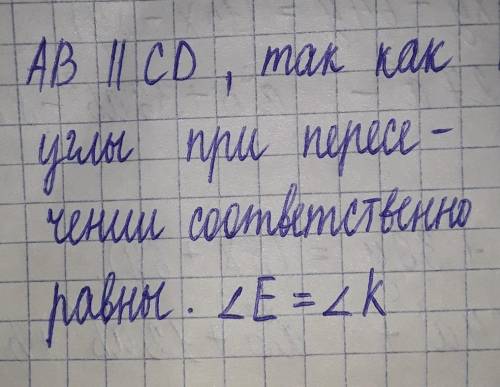 AB || CD, так как
углы при пересе-
чении соответственно
равны. ∠E = ∠K